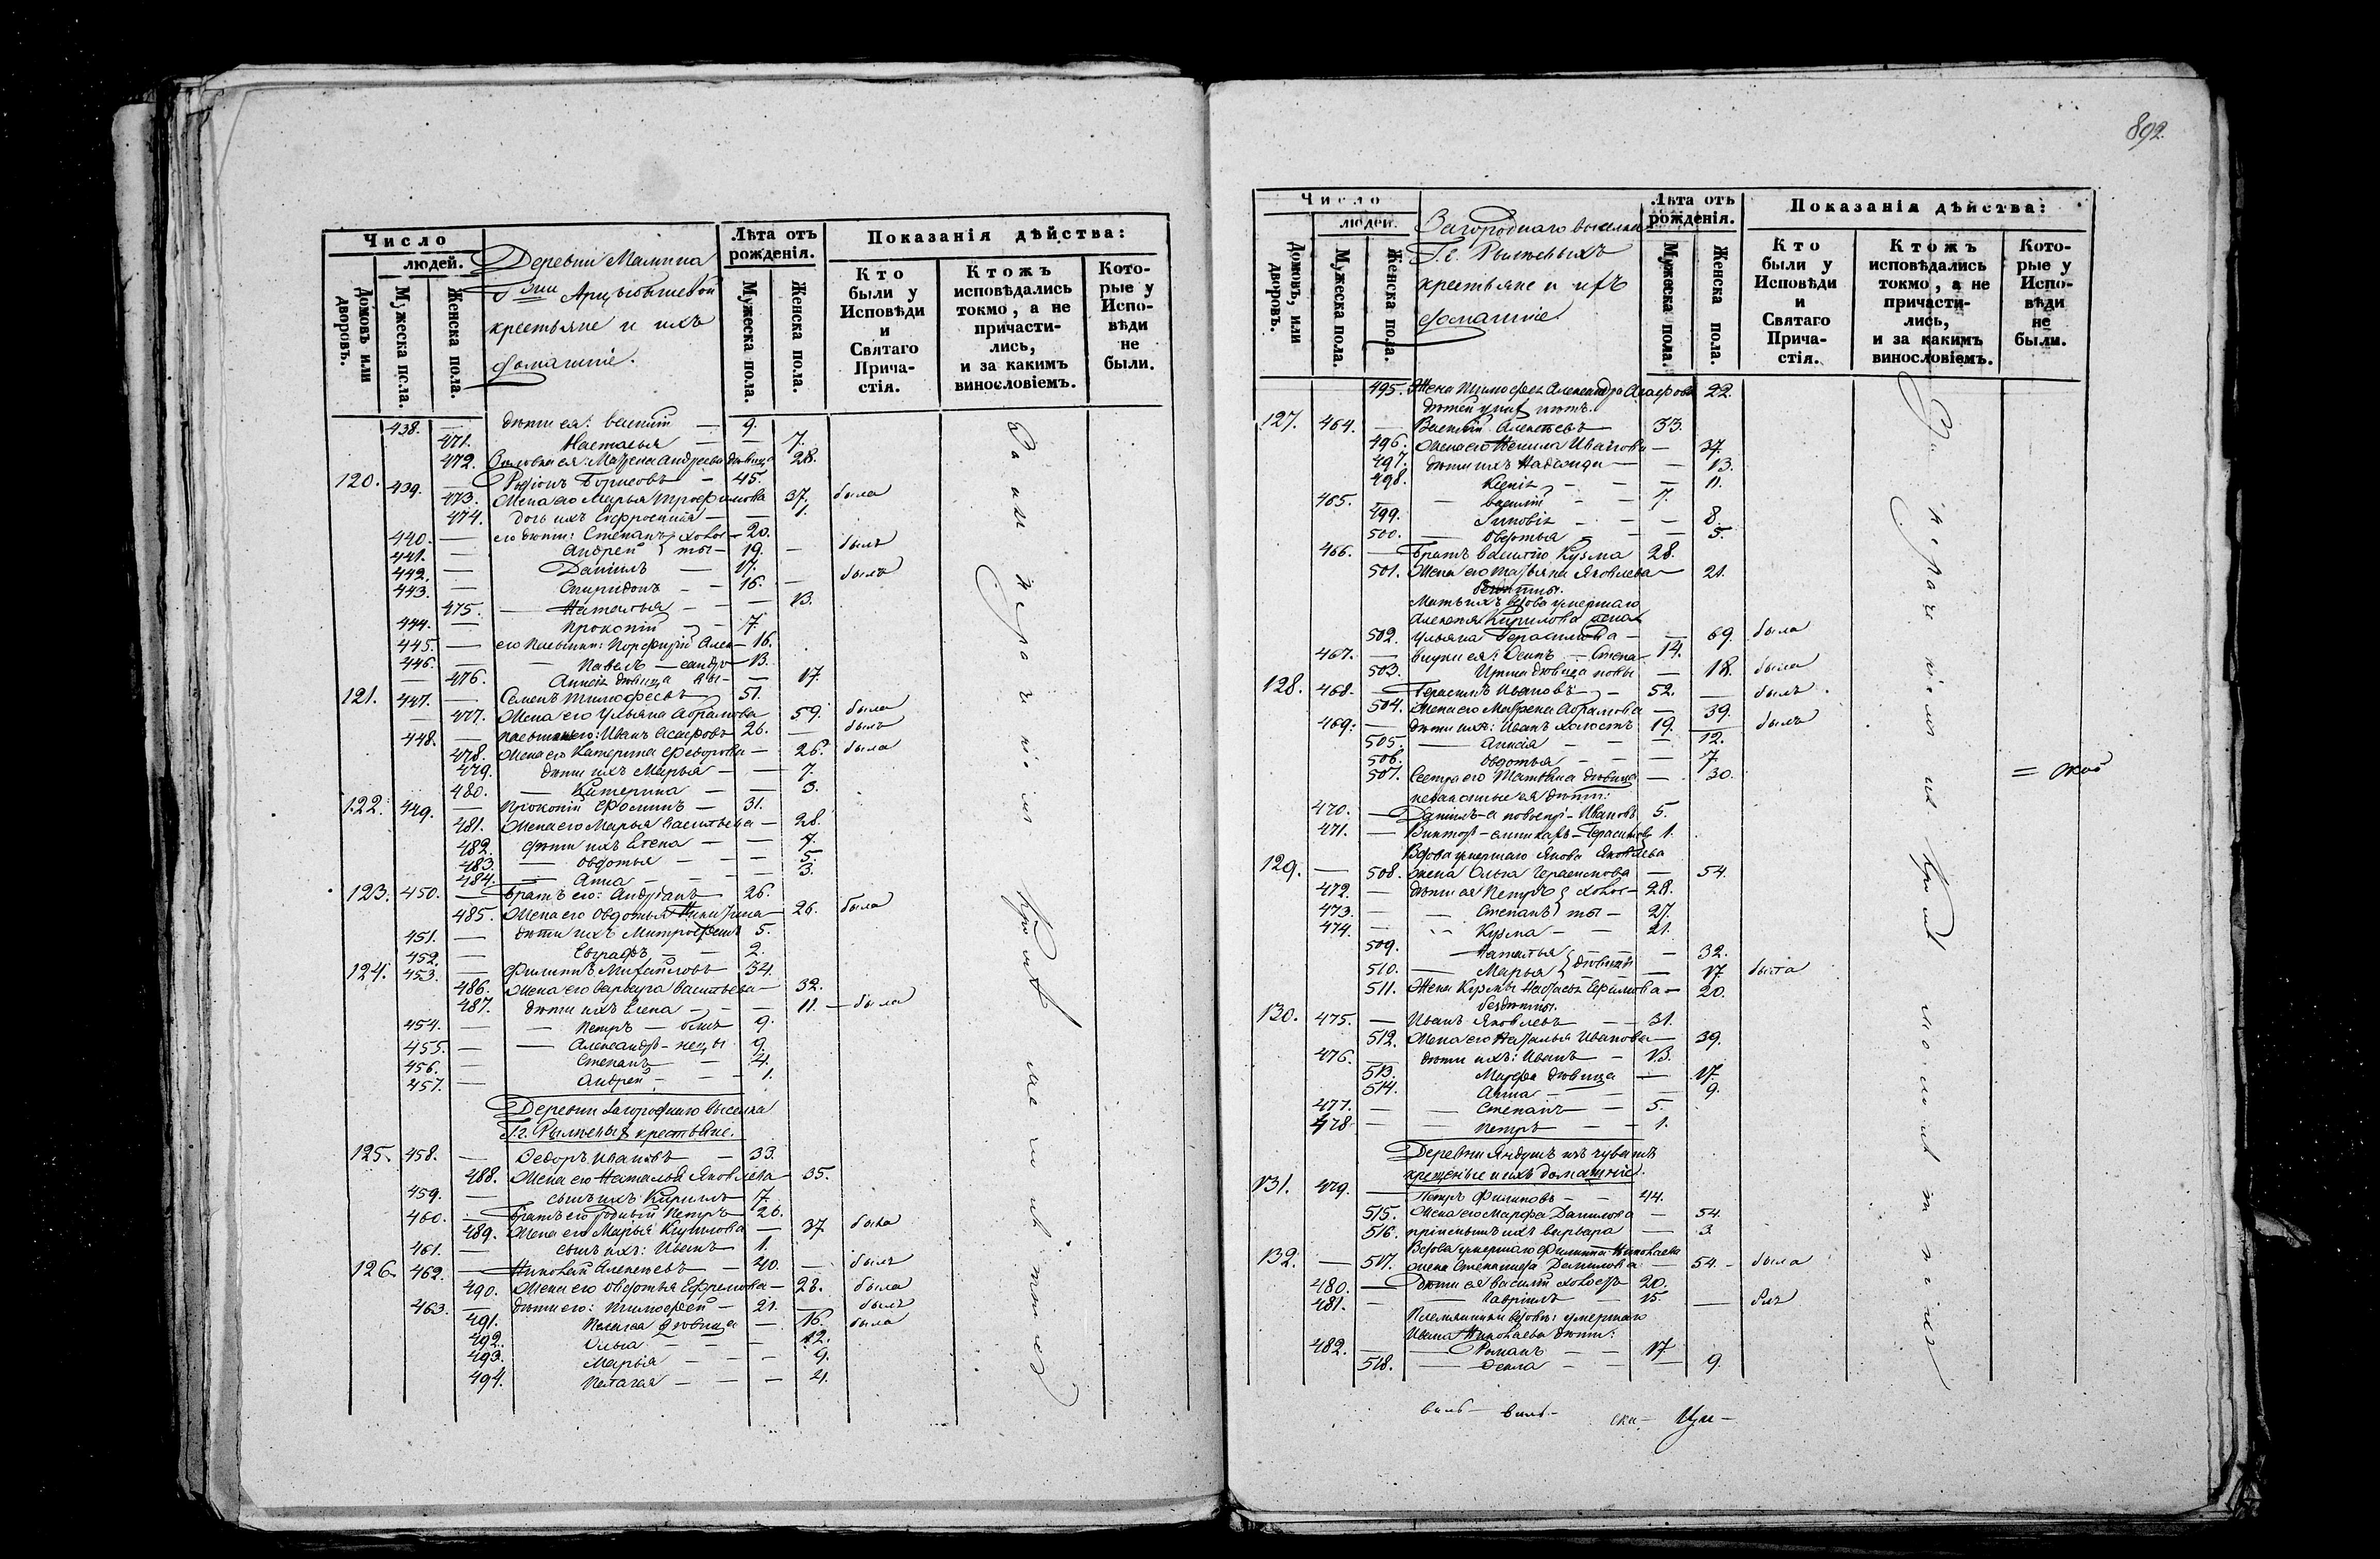 Число
людей.
Домовъ или дворовъ.
Мужеска пола.
Женска пола.
Деревни Малмина
Гжи Арцыбышевой
крестьяне и ихъ
домашніе.
Лѣта отъ рожденія.
Мужеска пола.
Женска пола.
Показанія дѣйства:
Кто были у Исповѣди и Святаго Прича-стія.
Ктожъ исповѣдались токмо, а не причасти-лись, и за какимъ винословіемъ.
Кото-рые у Испо-вѣди не были.
438. — дѣти ея: Василій — 9.
471. Настасья — — 7.
472. Матрена Андреева дѣвица 28.
120. 439. — Родіонъ Борисовъ — 45.
473. Жена его Марья Трофимова 37. была
474. дочь ихъ Евфросинія — — 1.
440. — его дѣти: Степанъ холос- 20.
441. — Андрей ты — 19. — былъ
442. — Даніилъ — 17.
443. — Спиридонъ — 16. — былъ
475. — Наталья — — 13.
444. — Прокопій — 7.
445. — его Порфирій Алек- 16.
446. — Павелъ — сандр- 13.
476. Анисія дѣвица — 17.
121. 447. — Семенъ Тимофеевъ 51.
477. Жена его Ульяна Абрамова 59. была
448. — Иванъ 26. — былъ
478. Жена его Катерина Федорова — 26. была
479. дѣти ихъ Марья — — 7.
480. — Катерина — — 3.
122. 449. — Прокопій Фоминъ — 31.
481. Жена его Марья Васильева — 28.
482. дѣти ихъ Елена — — 7.
483. — Овдотья — — 5.
484. — Анна — — 3.
123. 450. — Братъ его: Андріанъ 26.
485. Жена его Овдотья Никитина — 26. была
451. — дѣти ихъ Митрофанъ 5.
452. — Евграфъ — 2.
124. 453. — Филиппъ Михайловъ 34.
486. Жена его Варвара Васильева — 32.
487. дѣти ихъ Елена — — 11. — была
454. — — Петръ — близ- 9.
455. — — Александръ — нецы 9.
456. — Степанъ — 4.
457. — Андрей — — 1.
Деревни Загороднаго выселка
Г.г. Рылѣевыхъ крестьяне.
125. 458. — Федоръ Ивановъ — 33.
488. Жена его Наталья Яковлева 35.
459. — сынъ ихъ Кириллъ 7.
460. — Братъ его родный Петръ — 26.
489. Жена его Марья — 37. была
461. — сынъ ихъ: Иванъ 1.
126. 462. — Николай Алексеевъ — 40. — былъ
490. Жена его Овдотья Ефремова — 28. была
463. — дѣти его: Тимофей — 21. былъ
491. Пелагея дѣвица — 16. была
492. Ольга — — 12.
493. Марья — — 9.
494. Пелагея — — 4.
За нерачиніемъ
892.
Число
людей.
Домовъ, или дворовъ.
Мужеска пола.
Женска пола.
Загороднаго выселка
Г.г. Рылѣевыхъ
крестьяне и ихъ
домашніе
Лѣта отъ рожденія.
Мужеска пола.
Женска пола.
Показанія дѣйства:
Кто были у Исповѣди и Святаго Прича-стія.
Ктожъ исповѣдались токмо, а не причасти-лись, и за какимъ винословіемъ.
Кото-рые у Испо-вѣди не были.
495. Жена Тимофея Александра Агафова 22.
дѣтей у них нѣтъ.
127. 464. — Василій Алексеевъ 33.
496. Жена его Ненила Иванова — 37.
497. дѣти ихъ Надежда — — 13.
498. Ксенія — — 11.
465. — Василій — 7.
499. Зиновія — — 8.
500. Овдотья — — 5.
466. — Братъ Василію Кузма 28.
501. Жена его Татьяна Яковлева — 21.
бездѣтны.
Мать ихъ вдова умершаго
Алексея Кирилова жена
502. Ульяна Герасимова — — 69. была
467. — внуки ея: Осипъ — Степа- 14.
503. Ирина дѣвица новы — 18. была
128. 468. — Герасимъ Ивановъ — 52. — былъ
504. Жена его Матрена Абрамова — 39.
469. — дѣти ихъ: Иванъ холостъ 19. — былъ
505. — Анисія — — 12.
506. Овдотья — — 7.
507. Сестра его Татьяна дѣвица — 30.
незаконные ея дѣти:
470. — Даніилъ — Ивановъ 5.
471. — Викторъ — Герасимовъ 1.
Вдова умершаго Якова Яковлева
129. — 508. жена Ольга Герасимова — 54.
472. — дѣти ея Петръ холос- 28.
473. — — Степанъ ты — 27.
474. — Кузма — — 21.
509. — Наталья — — 32.
510. — Марья дѣвицы — 17. была
511. Жена Кузмы Настасья Ефимова — 20.
бездѣтны.
130. 475. — Иванъ Яковлевъ — 31.
512. Жена его Наталья Иванова — 39.
476. — дѣти ихъ: Иванъ — 13.
513. Марфа дѣвица — 17.
514. Анна — — 9.
477. — — Степанъ — 5.
478. — — Петръ — 1.
Деревни Яндушъ изъ чувашъ
крещеные и ихъ домашніе.
131. 479. — Петръ Филиповъ — 44.
515. Жена его Марфа Данилова — 54.
516. ихъ Варвара — 3.
Вдова умершаго Филиппа Николаева
132. — 517. жена Степанида Данилова — 54. — была
480. — дѣти ея Василій холостъ 20.
481. — — Гавріилъ — 15. — былъ
Племянники вдовы: умершаго
Ивана Николаева дѣти:
482. — Романъ — — 17.
518. — Фекла — — 9.